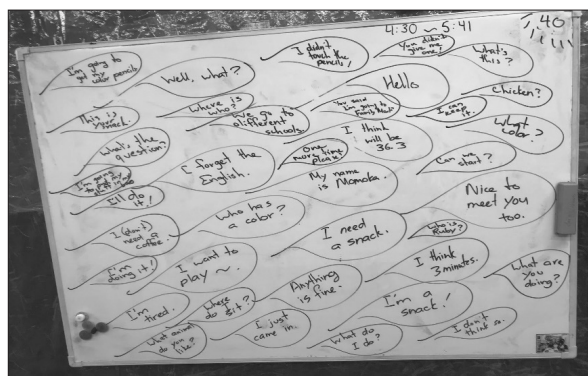 4:30 ~ 5:41
40
I'm going to
get my color pencils.
Well, what?
I didn't
touch the
pencils!
You didn't
give me
one!
What's
this?
This is
your snack.
Where is
who?
We go to
different
schools.
Hello
You said
I'm going to
Family Mart.
I can
keep
it.
chicken?
What's the
question?
I forget the
English.
One
more time
please
I think
will be
36.3
What
color?
I'm going
to put my
stuff
I'll do
it!
Who has
a color?
My name
is Momoka.
Can we
start?
Nice to
meet you
too.
I (don't)
need a
coffee.
I need
a snack.
Who is
Ruby?
I'm
doing it!
I want to
play ~.
Anything
is fine.
I think
3 minutes.
What are
you
doing?
I'm
tired.
Where
do I sit?
I'm a
snack!
What animal
do you
like?
I just
came in.
What do
I do?
I don't
think so.